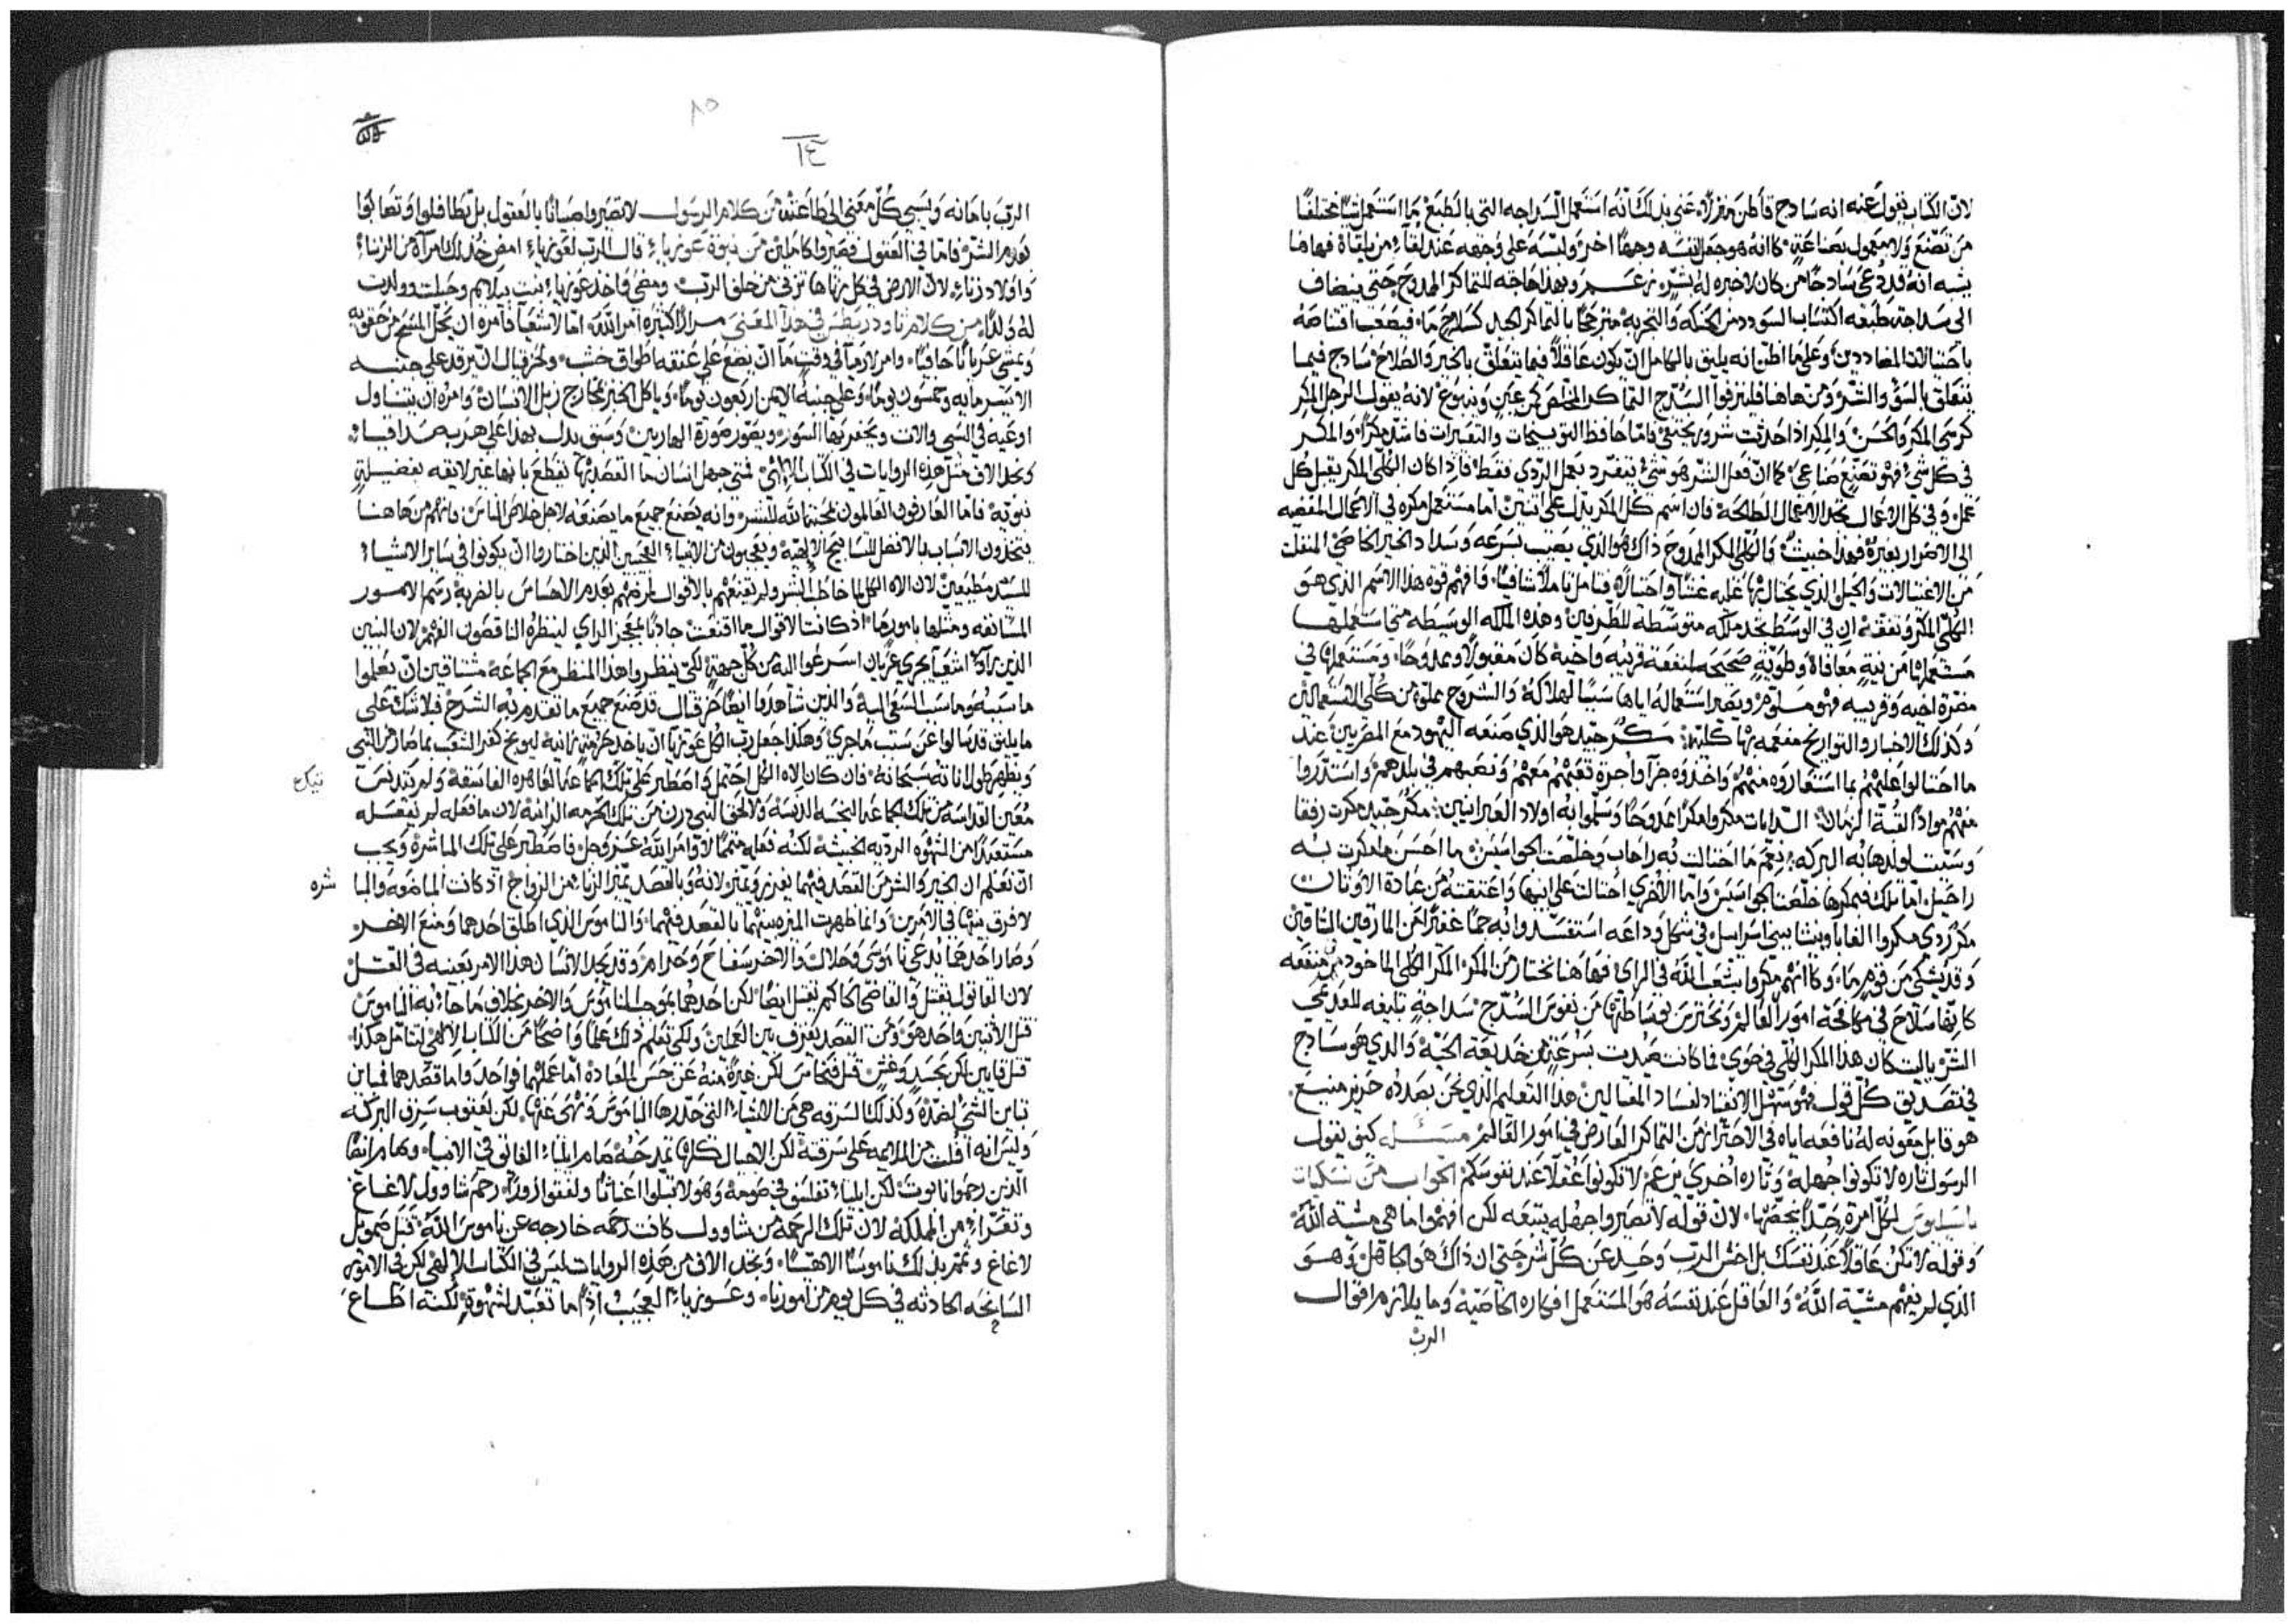 لان الكتاب يقول عنه انه ساذج فأظن عنى بذلك انه استعمل السذاجه التي بالطبع ما استعمل شيًا مختلفًا
من تصنع ولا معمول بصناعة كانه هو جعل لنفسه وجهًا اخر ولبسه على وجهه عند لقاء من يلقاه فهاهنا
يشبه انه قد دعى ساذجًا من كان لاخبره له بشر وبهذا حاجه للتماكر الممدوح حتى ينضاف
الى سذاجة طبعه اكتساب السودد من الحنكه والتجربة متدرعًا بالتماكر الجيد كسلاح ما فيضعف اقتناصه
باحتيالات المضاددين وعلى ما اظن انه يليق بالكامل ان يكون عاقلًا فيما يتعلق بالخير والصلاح ساذج فيما
يتعلق بالسوء والشر ومن هاهنا السذج التماكر كمن عين وينبوع لانه يقول الرجل المكر
كرسى المكر والحسن والمكر اذا حدثت شرور يختفي واما حافظ التوبيخات والتعييرات فاشد مكرًا والمكر
في كل شي فهو تصنع صناعي كما ان فعل الشر هو شي ينفرد بعمل الردي فقط فاذا كان الكلي المكر يقبل كل
عمل وفي كل الاعمال نجد الاعمال الطالحة فان اسم كل المكر يدل على اثنين اما مستعمل مكره في الاعمال المفضيه
الى الاضرار بغيره فهذا خبيث والكلي المكر الممدوح ذاك هو الذي يصيب بسرعه وسداد الخير الخاصي المنفلت
من الاغتيالات والحيل الذي يحتال بها عليه غشًا واحتيالًا فتامل تاملًا شافيًا وافهم قوة هذا الاسم الذي هو
الكلي المكر وتفقه ان في الوسط نجد ملكه متوسطة للطرفين وهذه الملكه الوسيطه متى استعملها
مستعملها من نية معافاة وطوية صحيحه لمنفعة قريبه واخيه كان مقبولًا وممدوحًا ومستعملها في
مضرة اخيه وقريبه فهو مستلوم ويصير استعماله اياها سببًا لهلاكه والشروح مملوه من كلي الاستعمالين
وكذلك الاخبار والتواريخ مفعمه بها كلتيها مكر جيد هو الذي صنعه اليهود مع المصريين عند
ما احتالوا عليهم بما استعاروه منهم واخذوه جزآ واجرة تعبهم معهم ونصبهم في بلدهم واستدروا
منهم موادًا لقبة الزمان الدايات مكروا مكرًا ممدوحًا وسلموا به اولاد العبرانيين مكر جيد مكرت رفقا
وسببت لولدها به البركه نعم ما احتالت به راحاب وخلصت الجواسيس ما احسن ما مكرت به
راحيل اما تلك فبمكرها خلصت الجواسيس واما الاخرى احتالت على ابيها واعتقته من عبادة الاوثان
مكر ردي مكروا الغاباونيشا ببني اسراييل في شكل وداعه استفسدوا به جمًا غفيرًا من المارقين المنافقين
وقد يشتكي من قوم ما وكانهم مكروا بشعب الله في الراي فهاهنا نختار من المكر المكر الكلي الماخوذ من منفعه
كانها سلاح في مكافحة امور العالم ونحترس من نفوس السذج سذاجة تابعه للعديمي
الشر ياليت كان هذا المكر الكلي في حوى فما كانت صيدت بسرعة من خديعة الحية والذي هو ساذج
في تصديق كل قول فهو سهل الانقياد لفساد المغالين هذا التعليم الذي نحن بصدده حريز منيع
هو قابل معونه له نافعه اياه في الاحتراز من التماكر العارض في امور العالم مسئله كيف يقول
الرسول تاره لا تكونوا جهله وتاره اخرى يزعم لا تكونوا عقلا عند نفوسكم الجواب من نسكيات
باسيليوس لكل امرة حدًا يخصها لان قوله لا تصيروا جهله يتبعه لكن افهموا ما هي مشية الله
وقوله لا تكن عاقلًا عند نفسك بل اخش الرب وحيد عن كل شر حتى ان ذاك هو الجاهل وهو
الذي لم يفهم مشية الله والعاقل عند نفسه هو المستعمل افكاره الخاصية وما يلازم اقوال
الرب
٨٥
١٤
الرب بامانه ويسبي كل معنى الى طاعته من كلام الرسول لا تصيروا صبيانًا بالعقول بل تطافلوا وتصابوا
بعدم الشر فاما في العقول فصيروا كاملين من نبوة عوزياء قال الرب لعوزياء امض خذ لك امرآة من الزناء
واولاد زناء لان الارض في كل زناها تزني من خلف الرب ومضى واخذ عوزياء بنت بيلايم وحبلت وولدت
له ولدًا من كلام ثاودريطس في هذا المعنى مرارًا كثيرة امر الله اما لاشعيآ فآمره ان يحل المسح من حقويه
ويمشى عريانًا حافيًا وامر لارميآ في وقت مآ ان يضع على عنقه اطواق خشب ولحزقيال ان يرقد على جنبه
الايسر مايه وخمسون يومًا وعلى جنبه الايمن اربعون يومًا وياكل الخبز بخارج زبل الانسان وامره ان يتناول
اوعيه في السبي والات ويحفر بها السور ويصور صورة الهاربين وسبق يدل بهذا على هرب صدافياء
ونجد الاف مثل هذه الروايات في الكتاب الالهي فمتى جهل انسان ما القصد بها يقطع بانها غير لايقه بفضيلة
نبوية فاما العارفون العالمون بمحبة الله للبشر وانه يصنع جميع ما يصنعه لاجل خلاص الناس فانهم من هاهنا
يتخذون الاسباب بالافضل للتسابيح الالهية ويعجبون من الانبياء المحبين الذين اختاروا ان يكونوا في ساير الاشياء
للسيد مطيعين لان الاه الكل لما خاطب البشر ولم يقنعهم بالاقوال نقدم الاحساس بالغريبة رسم الامور
المستانفه ومثلها بامورها اذ كانت الاقوال ما اقنعت جاذبًا بمعجز الراي لينظره الناقصون الفهم لان الذين
الذين رآو اشعيآ يجري عريان اسرعوا اليه من كل جهة لكي ينظروا هذا المنظر مع الجماعة مشتاقين ان يعلموا
ما سببه وما سبب السعي اليه والذين شاهدوا ايضًا حزقيال قد صنع جميع ما تقدم به الشرح فلاشك على
ما يليق قد سالوا عن سبب ما جرى وهكذا جعل رب الكل عوزيا ان ياخذ حرمة زانية ليوبخ كفر الشعب بما صار من النبي
ويظهر طول اناته سبحانه فان كان الاه الكل احتمل واصطبر على تلك الجماعه العاهره الفاسقة ولم تتدنس
معين القداسة من تلك الجماعه النجسه الدنسه ولا لحق النبي درن من تلك الحرمه الزانيه لان ما فعله لم يفعله
مستعبدًا من الشهوه الرديه الخبيثه لكنه فعله متممًا لآوامر الله عز وجل فاصطبر على تلك المباشرة ويجب
ان نعلم ان الخير والشر من القصد فيهما يفرز ويتميز لانه وبالقصد تميز الزناء من الزواج اذ كانت المباضعه والمبا
لا فرق بينها في الامرين وانما ظهرت الميزه بينهما بالقصد فيهما والناموس الذي اطلق احدهما ومنع الاخر
وصار احدهما يدعى ناموسى وحلال والاخر سفاح وحرام وقد يجد الانسان هذا الامر بعينه في القتل
لان القاتول يقتل والقاضى الحاكم يقتل ايضًا لكن احدهما بموجب الناموس والاخر بخلاف ما جاء به الناموس
قتل الاثنين واحد هو ومن القصد يفترق بين العملين ولكي نعلم ذلك علمًا واضحًا من الكتاب الالهي لنتامل هكذا
قتل قايين لكن بحسد وغش قتل فنحاس لكن غيرة منه عن حسن العبادة اما عملهما فواحد واما قصدهما فمباين
تباين الشي لضده وكذلك السرقه هي من الاشياء التي حددها الناموس ونهى عنها لكن يعقوب سرق البركه
وليس انه افلت من الملامه على سرقته لكن الاجيال كلها تمدحه
الذين رحموا تابوت
وتعرا من المملكة لان تلك الرحمه من شاوول كانت رحمه خارجه عن ناموس الله قتل صمويل
لاغاغ وتمم بذلك ناموسًا الاهيًا ونجد الاف من هذه الروايات ليس في الكتاب الالهي لكن في الامور
السانحه الحادثه في كل يوم من امورنا وعوزياء العجيب اذًا ما تعبد لشهوة لكنه اطاع
شره